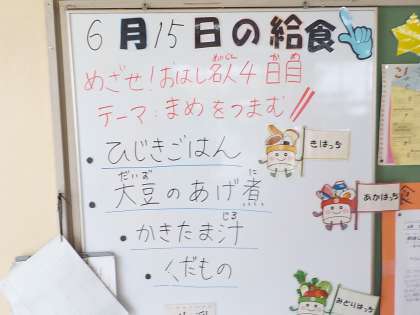 6月15日の給食
めざせ!おはし名人4日目
テーマ:まめをつまむ!!
・ひじきごはん
きはっち
・大豆のあげ煮
あかはっち
・かきたま汁
・くだもの
みどりはっち